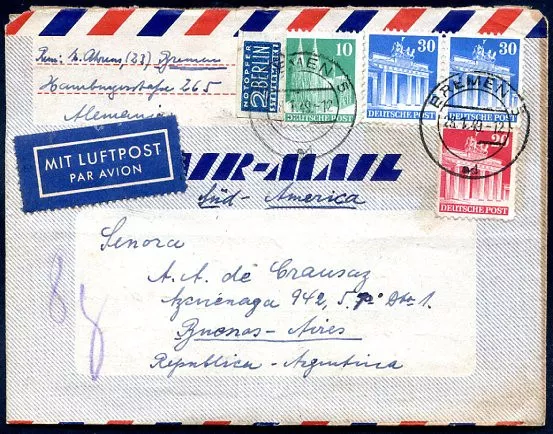 Rem: W. Ahrens, (23) Bremen
Hamburgerstraße 265
Alemania
NOTOPFER
2 BERLIN
STEUERMARKE
10
DEUTSCHE POST
30
DEUTSCHE POST
30
DEUTSCHE POST
20
DEUTSCHE POST
BREMEN 5
BREMEN 5
MIT LUFTPOST
PAR AVION
AIR-MAIL
Süd-America
Senora
A. A. de Crausaz
Azcuénaga 942, 5. p° Dto 1.
Buenos-Aires
Republica-Argentina